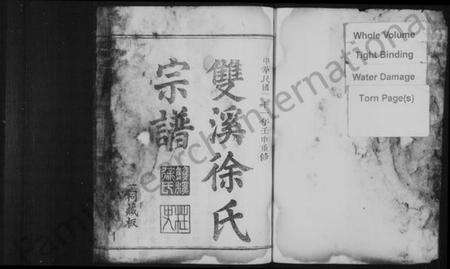 中華民國
壬申重修
雙溪徐氏
宗譜
祠藏板
Whole Volume
Tight Binding
Water Damage
Torn Page(s)
FamilySearch International